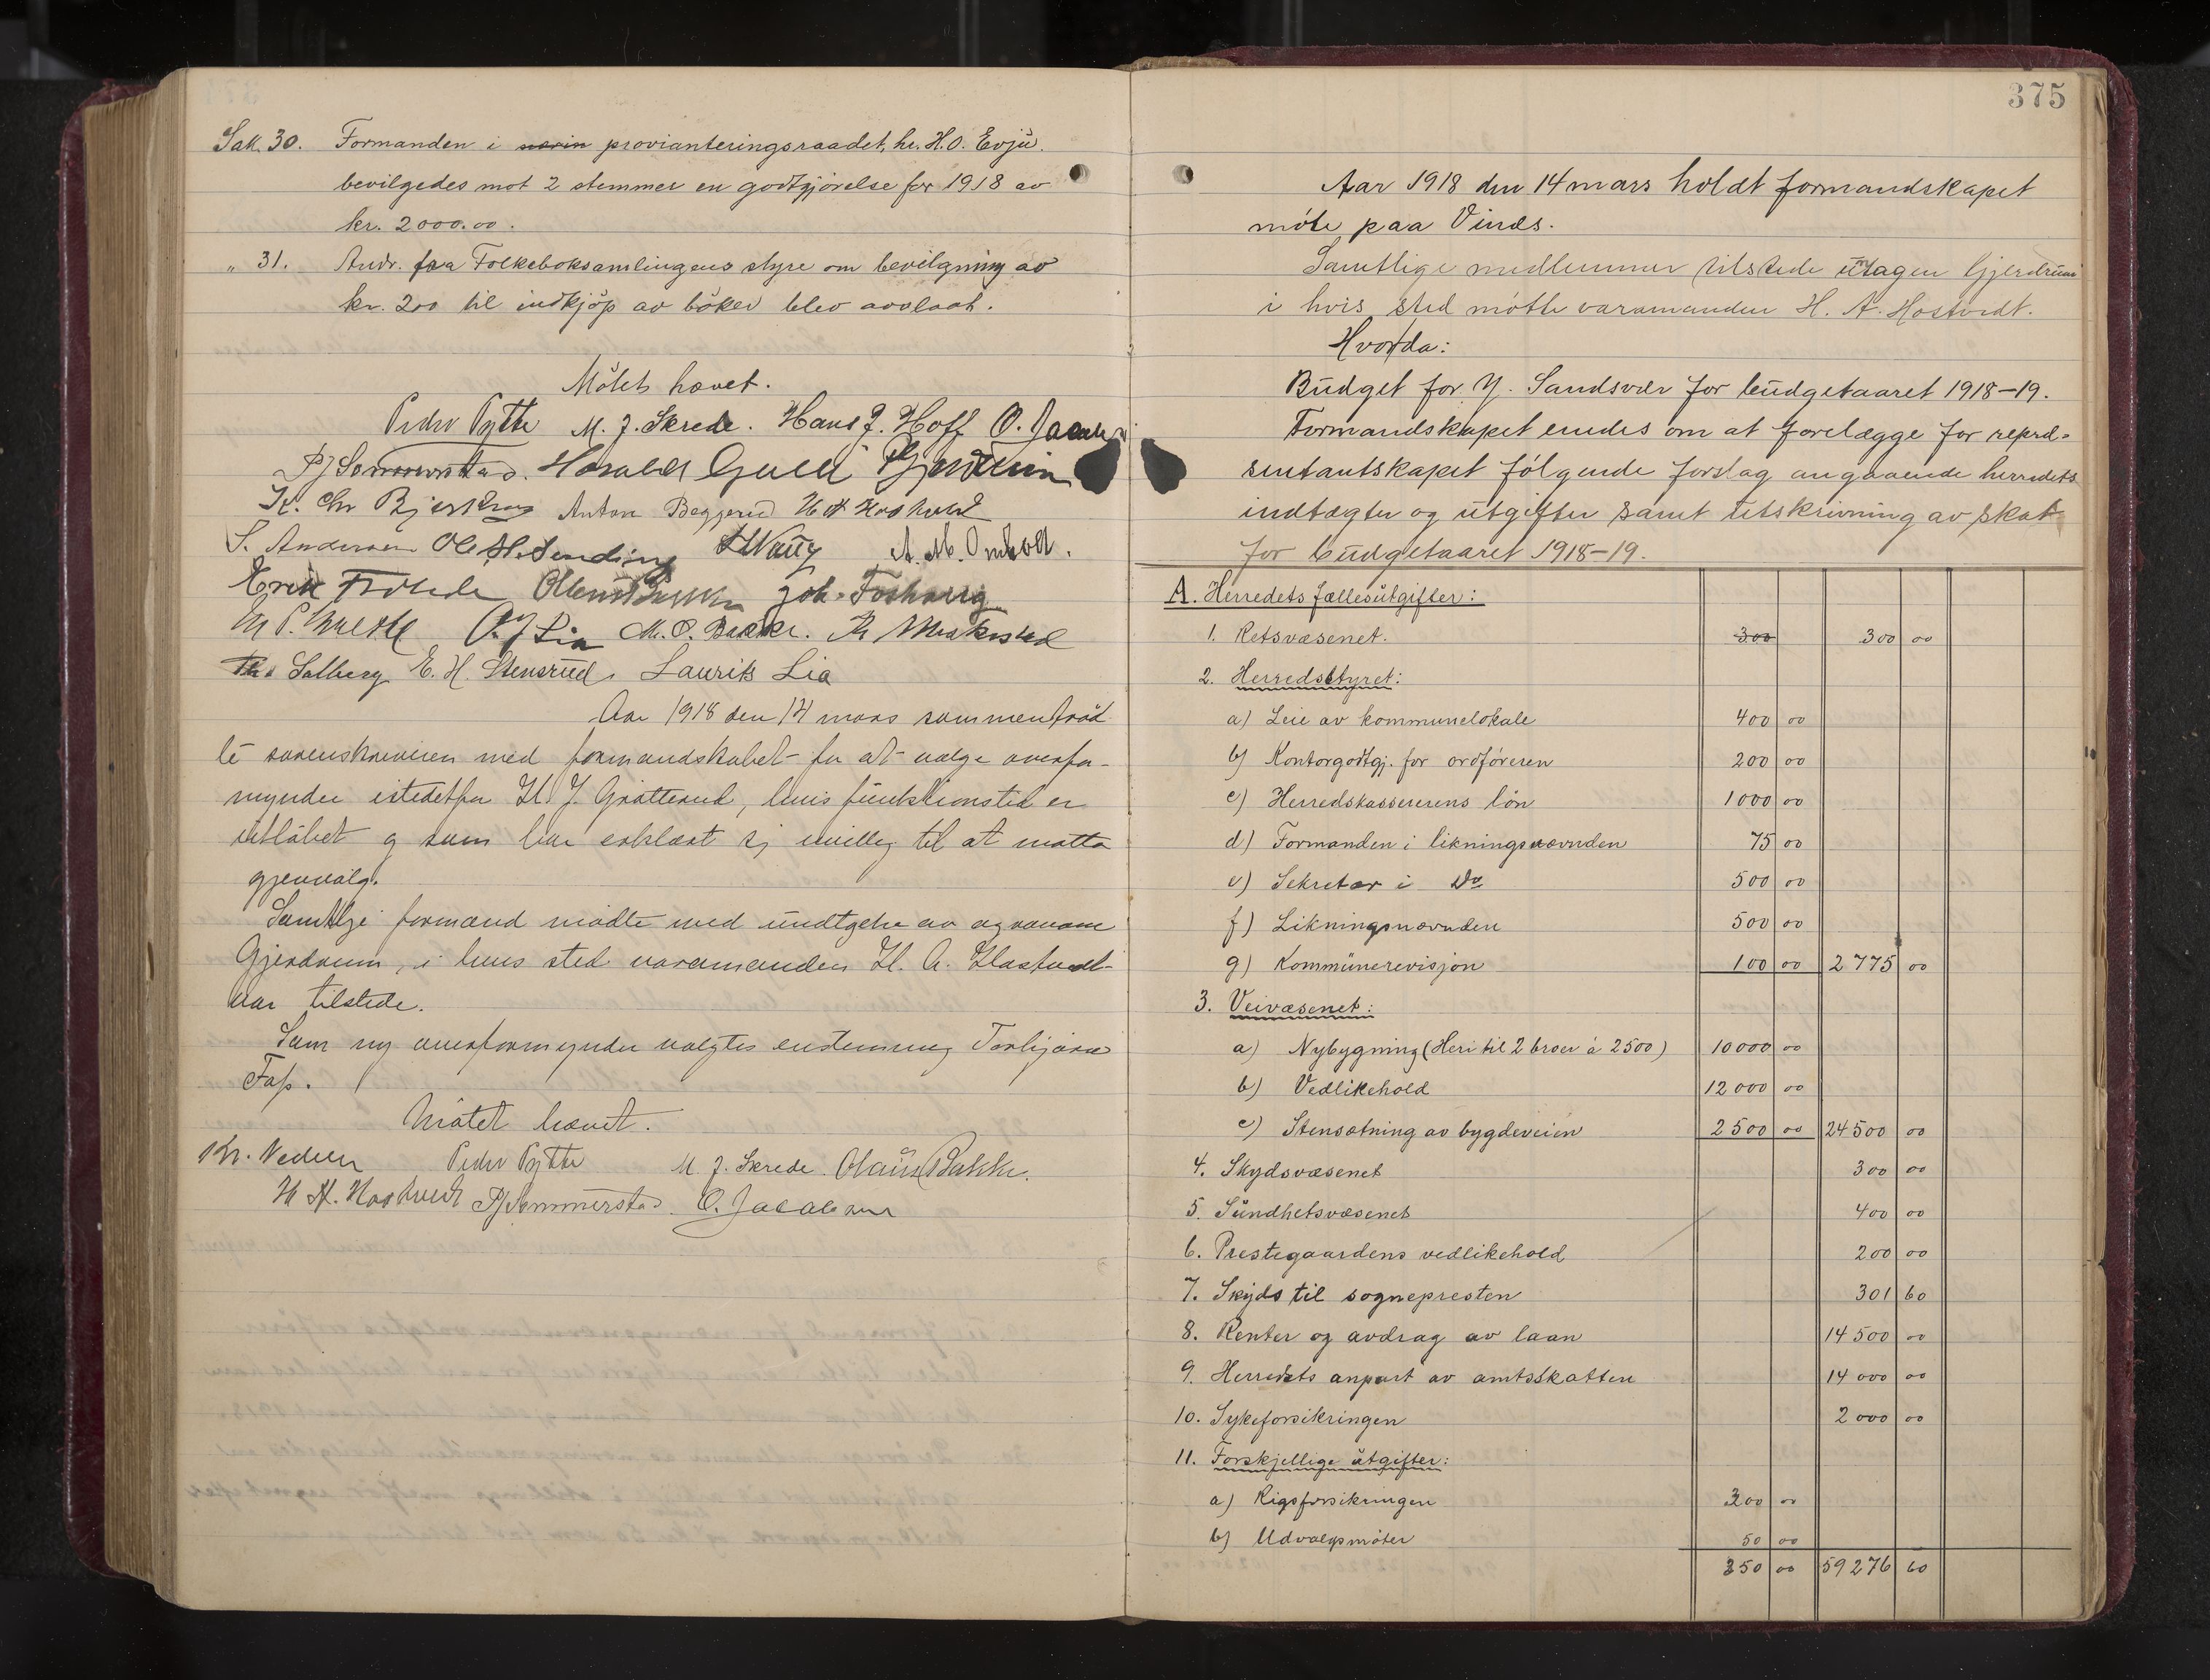 Sak 30. Formanden i provianteringsraadet, hr. H.O. Evju.
bevilgedes mot 2 stemmer en godtgjørelse for 1918 av
kr. 2000.00.
" 31. Andr. fra Folkeboksamlingens styre om bevilgning av
kr. 200 til indkjöp av böker blev avslaat.
Mötet hævet.
Peder Pytte M. J. Skrede. Hans J. Hoff O. Jacobsen
PJSommerstad. Harald Gjerdrum
K. Chr Anton Beggerud H A Hostvedt
S. Andersen Ole H. Sending A. M. Omholt.
Erik Olaus Bakke Joh. Foshaug
O. J Lia M. O. Bakke.
Solberg E. H. Stensrud. Laurits Lia
Aar 1918 den 14 mars sammentraad
te sorenskriveren med formandskabet for at vælge overfor-
mynder istedetfor H. J. Grötterud, hvis funktionstid er
utløbet og som har erklært sig uvillig til at motta
gjenvalg.
Samtlige formænd mødte med undtgelse av
Gjerdrum, i hvis sted varamanden H. A. Hastvedt
var tilstede.
Som ny overformynder valgtes enstemmig Torbjørn
Fass.
Møtet hævet.
Kr. Nedrum Peder Pytte M. J. Skrede. Olaus Bakke.
H A. Hostvedt PJSommerstad O. Jacobsen
375
Aar 1918 den 14 mars holdt formandskapet
möte paa Vinds.
Samtlige medlemmer tilstede untagen Gjerdrum
i hvis sted mötte varamanden H. A. Hostvedt.
Hvorda:
Budget for Y. Sandsvær for budgetaaret 1918-19.
Formandskapet enedes om at forelægge for repræ-
sentantskapet fölgende forslag angaaende herredets
indtægter og utgifter samt utskrivning av skat
for budgetaaret 1918-19.
A. Herredets fællesutgifter:
1. Retsvæsenet. 300 300 00
2. Herredsstyret:
a) Leie av kommunelokale 400 00
b) Kontorgodtgj. for ordföreren 200 00
c) Herredskassererens lön 1000 00
d) Formanden i likningsnævnden 75 00
e) Sekretær i Do 500 00
f) Likningsnævnden 500 00
g) Kommunerevisjon 100 00 2775 00
3. Veivæsenet:
a) Nybygning (Heri til 2 broer à 2500) 10000 00
b) Vedlikehold 12000 00
c) Stensætning av bygdeveien 2500 00 24500 00
4. Skydsvæsenet 300 00
5. Sundhetsvæsenet 400 00
6. Prestegaardens vedlikehold 200 00
7. Skyds til sognepresten 301 60
8. Renter og avdrag av laan 14500 00
9. Herredets anpart av amtsskatten 14000 00
10. Sykeforsikringen 2000 00
11. Forskjellige utgifter:
a) Rigsforsikringen 300 00
b) Udvalgsmöter 50 00
350 00 59276 60